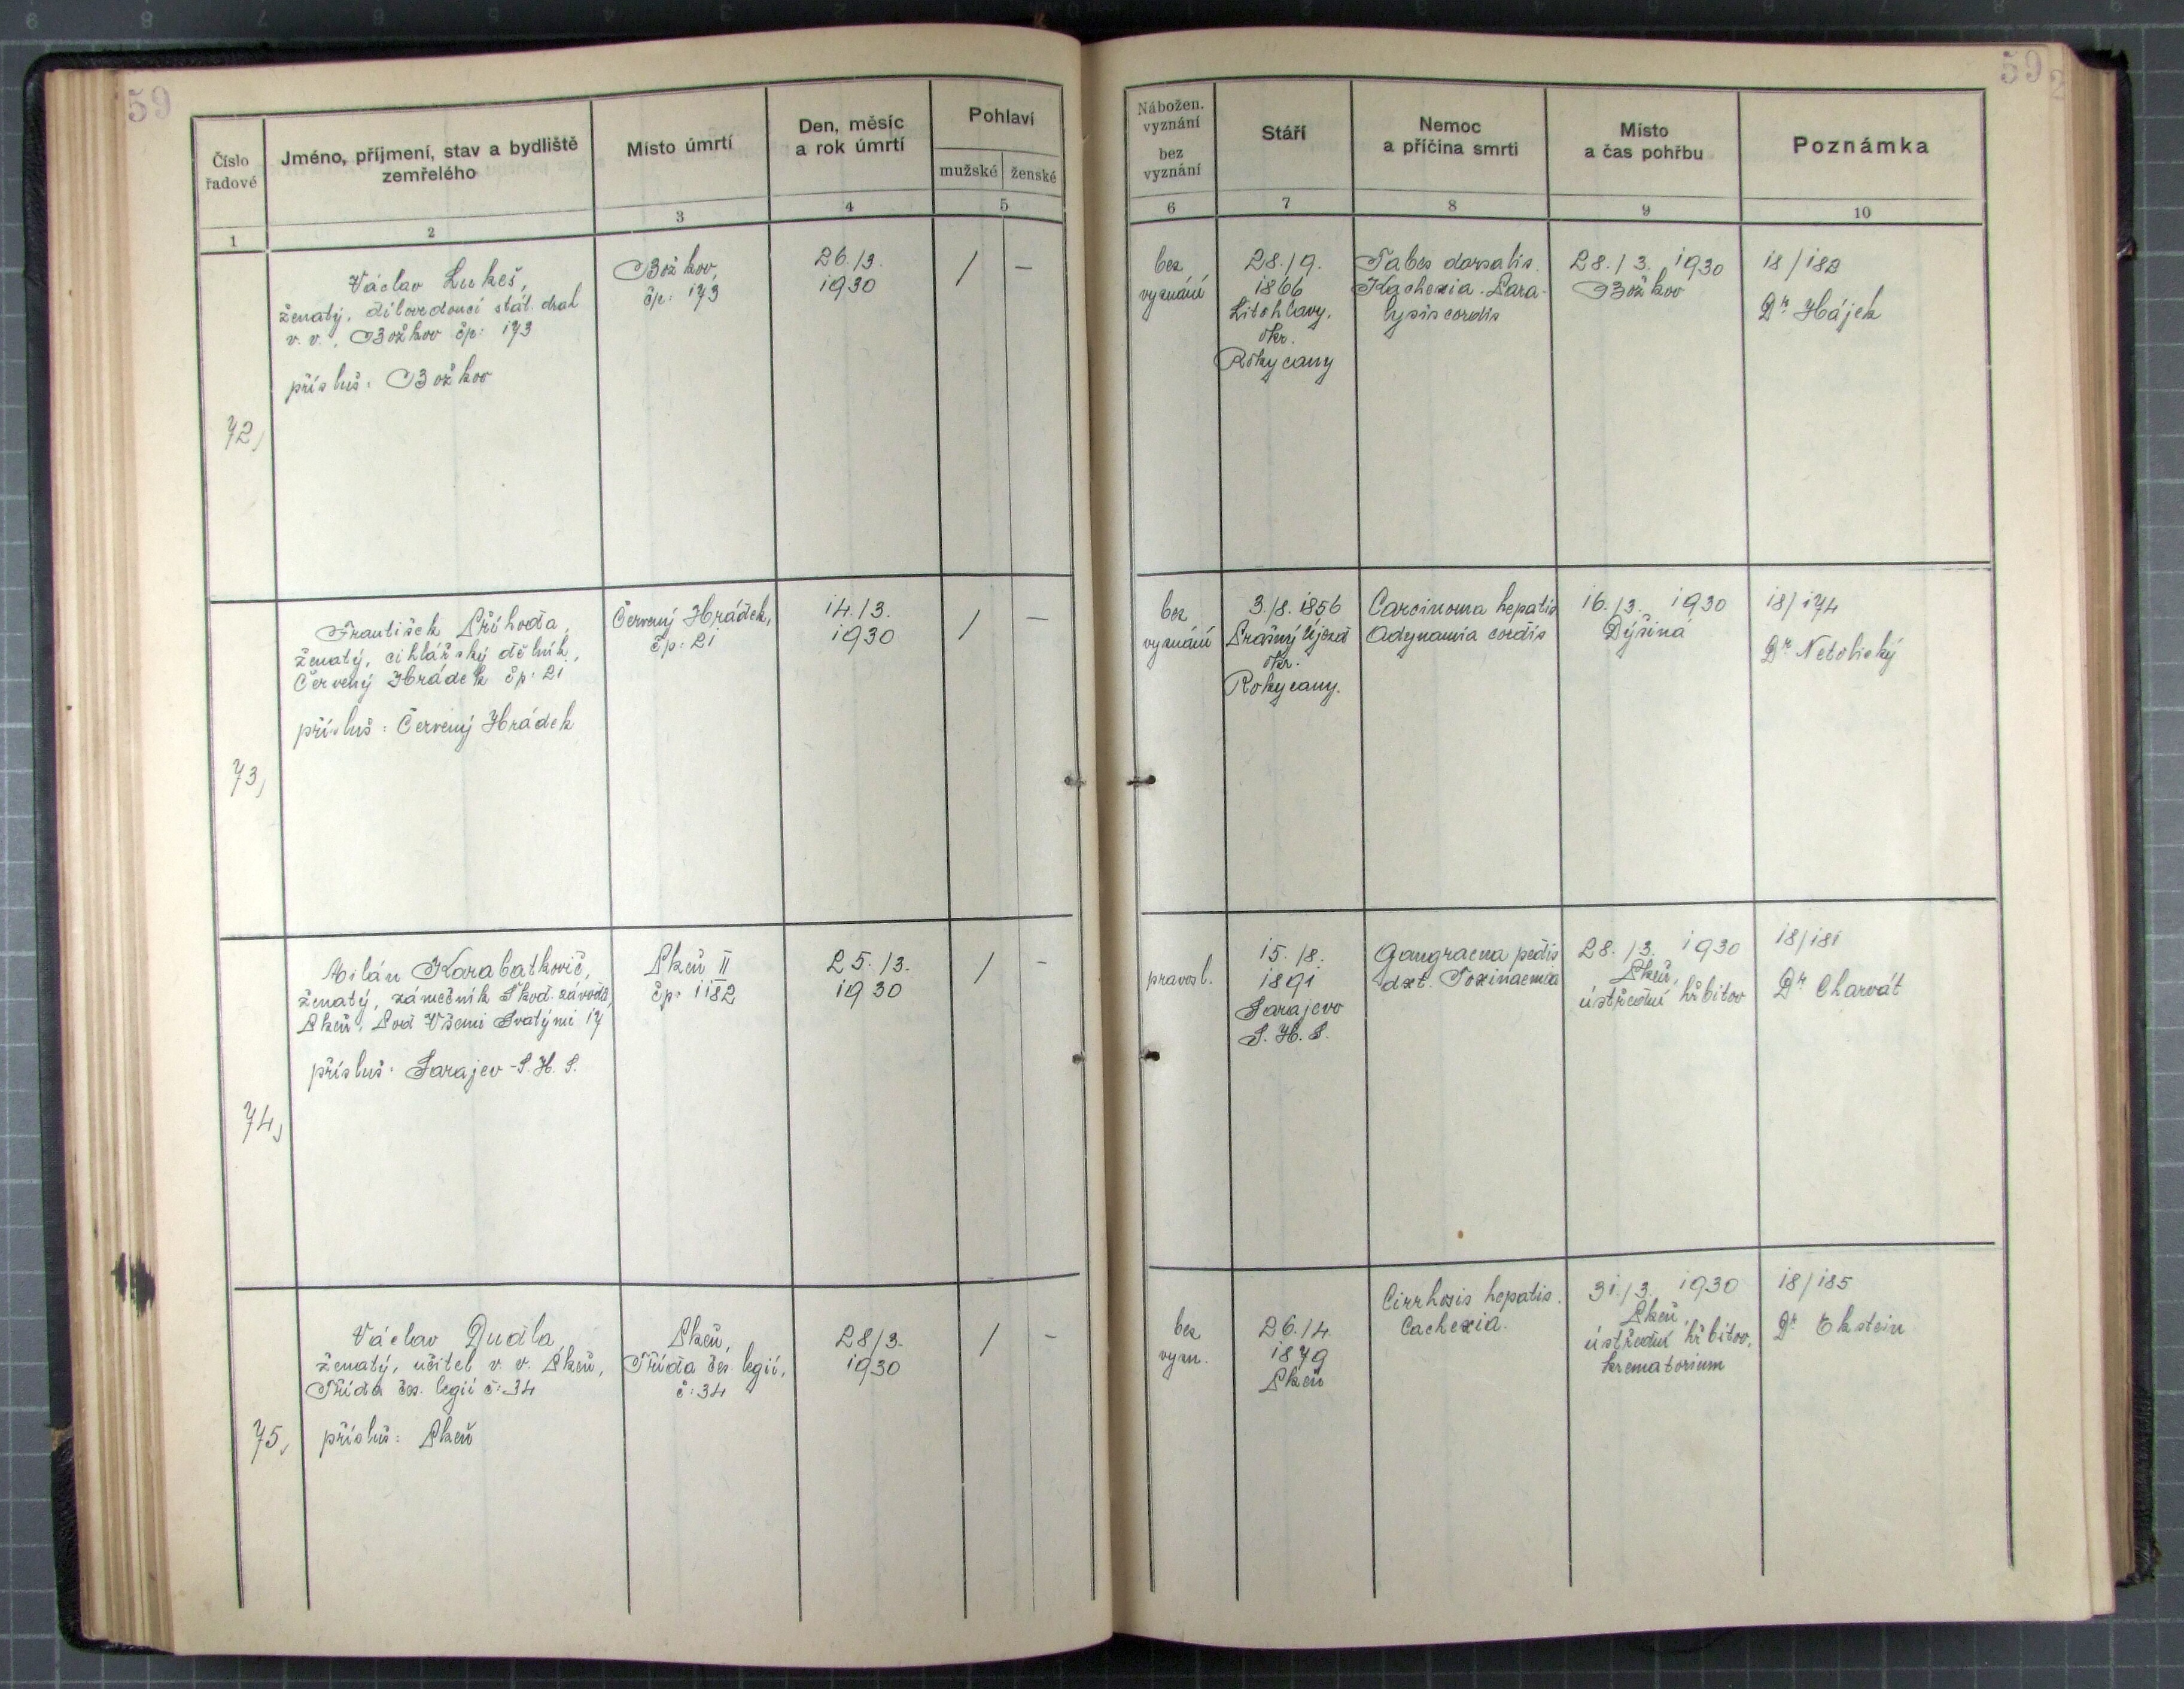 59
59
2
Číslo
řadové
Jméno, příjmení, stav a bydliště
zemřelého
Místo úmrtí
Den, měsíc
a rok úmrtí
Pohlaví
mužské
ženské
Nábožen.
vyznání
bez
vyznání
Stáří
Nemoc
a příčina smrti
Místo
a čas pohřbu
Poznámka
1
2
3
4
5
6
7
8
9
10
72,
Václav Lukeš,
ženatý, dílovedoucí stát. drah
v. v., Božkov čp: 173
přísluš: Božkov
Božkov,
čp: 173
26./3.
1930
/
—
bez
vyznání
28./9.
1866
Litohlavy,
okr.
Rokycany
Tabes dorsalis.
Kachexia. Para-
lysis cordis
28./3. 1930
Božkov
18/183
Dr Hájek
73,
František Příhoda,
ženatý, cihlářský dělník,
Červený Hrádek čp: 21
přísluš: Červený Hrádek
Červený Hrádek,
čp: 21
14./3.
1930
/
—
bez
vyznání
3./8. 1856
Prašný Újezd
okr.
Rokycany.
Carcinoma hepatis
Adynamia cordis
16./3. 1930
Dýšina
18/174
Dr Netolický
74,
Milán Karabatkovič,
ženatý, zámečník Škod. závodů
Plzeň, Pod Všemi Svatými 17
přísluš: Sarajev - S. H. S.
Plzeň II
čp: 1182
25./3.
1930
/
—
pravosl.
15./8.
1891
Sarajevo
S. H. S.
Gangraena pedis
dxt. Toxinaemia
28./3. 1930
Plzeň,
ústřední hřbitov
18/181
Dr Charvát
75,
Václav Dudla,
ženatý, učitel v. v. Plzeň,
Třída čes. legií č: 34
přísluš: Plzeň
Plzeň,
Třída čes. legií,
č: 34
28/3.
1930
/
—
bez
vyzn.
26./4.
1879
Plzeň
Cirrhosis hepatis.
Cachexia.
31./3. 1930
Plzeň,
ústřední hřbitov,
krematorium
18/185
Dr Ekstein